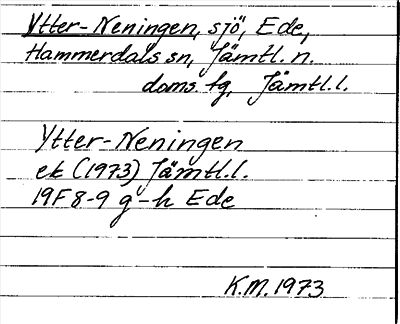 Ytter-Neningen, sjö, Ede,
Hammerdals sn, Jämtl. n.
doms. fg, Jämtl. l.
Ytter-Neningen
ek (1973) Jämtl. l.
19F 8-9 g-h Ede
K.M. 1973